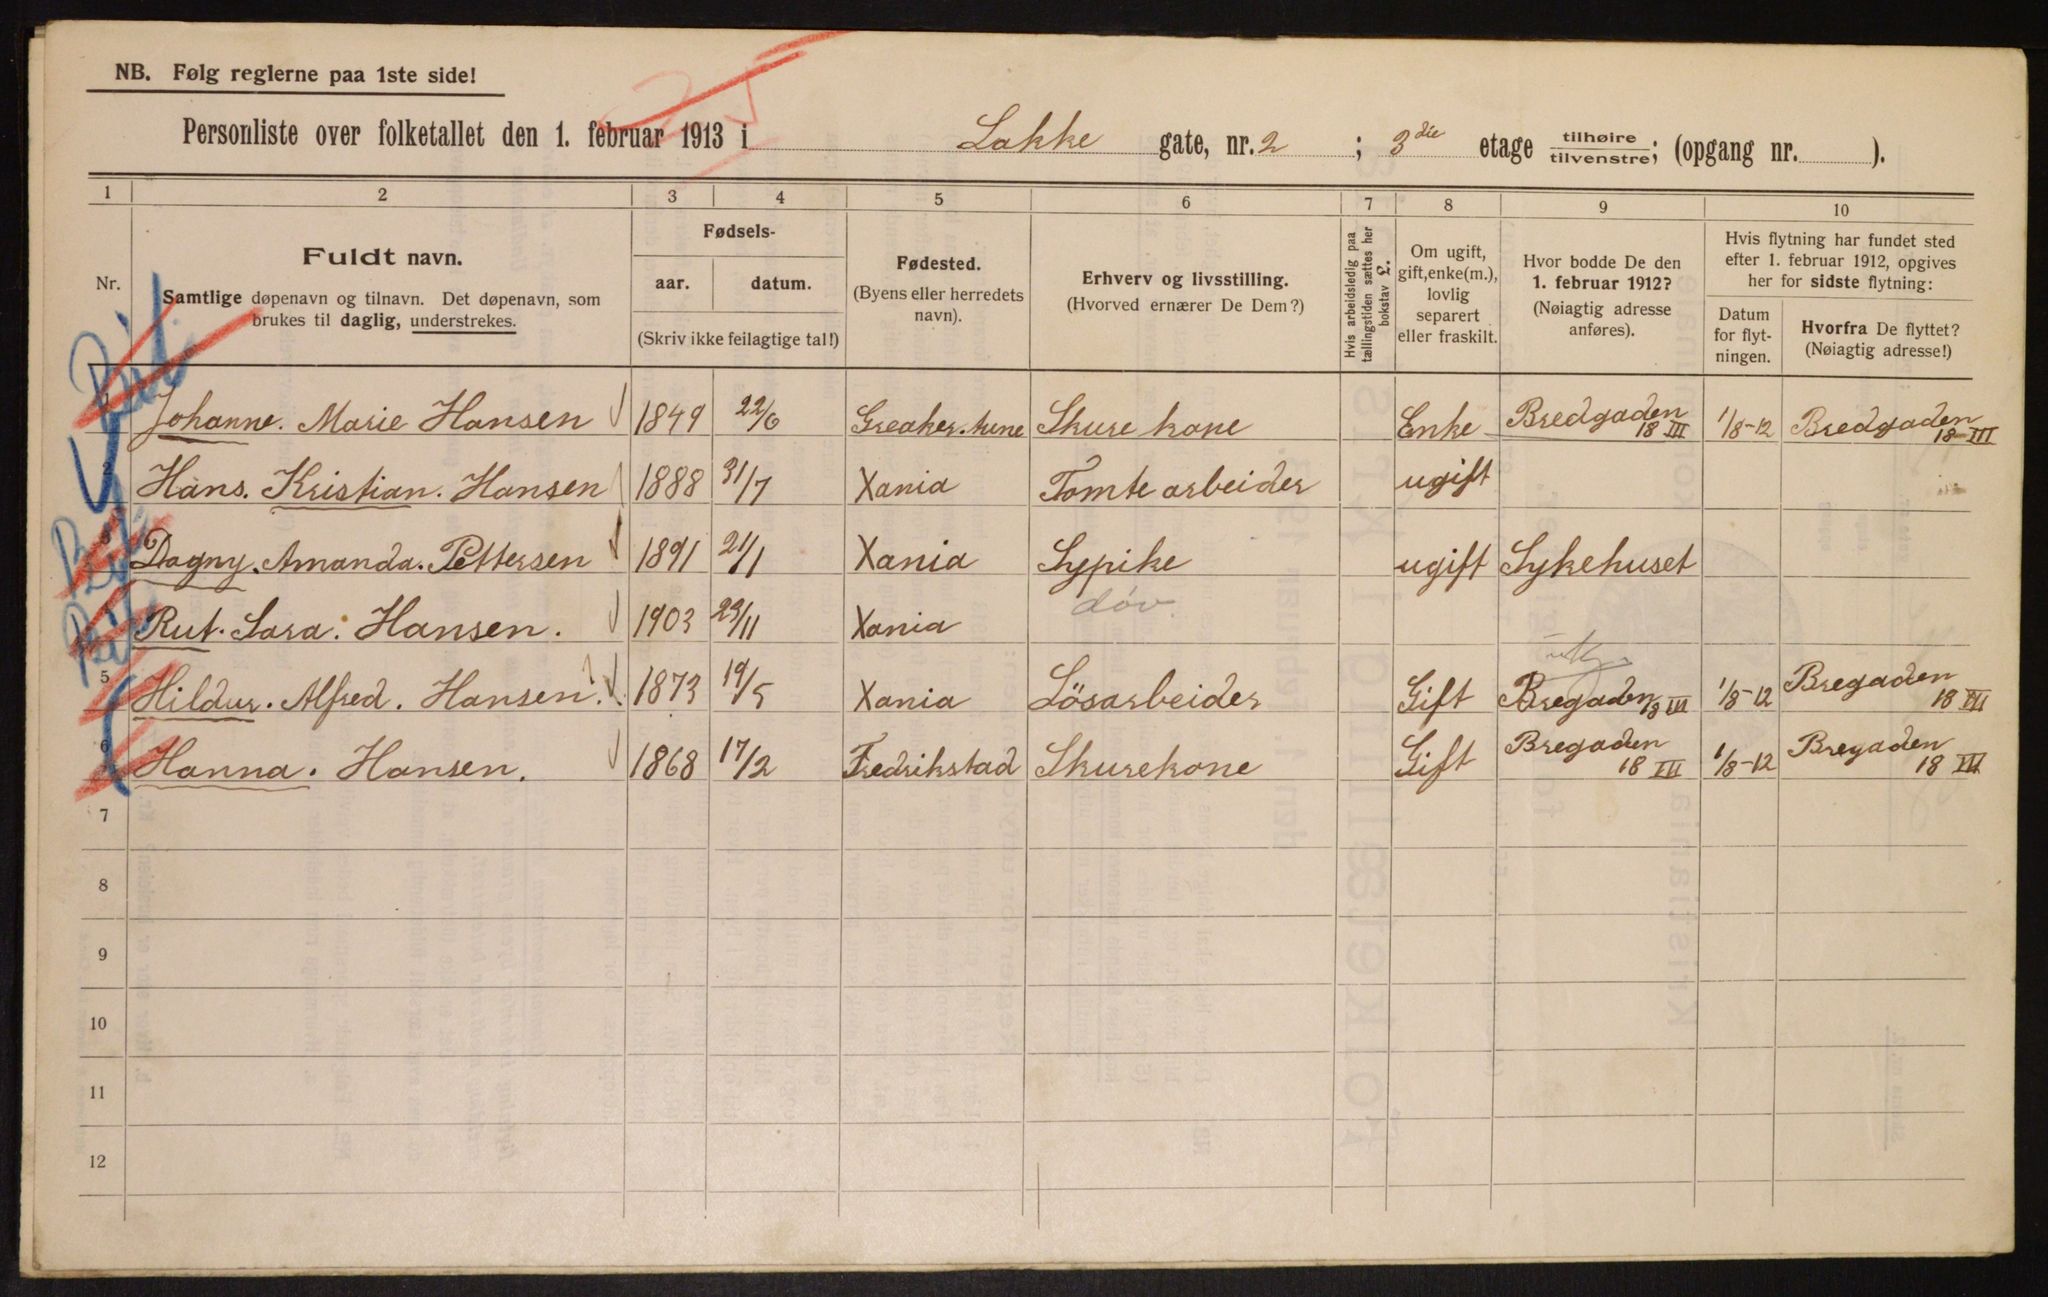 NB. Følg reglerne paa 1ste side!
Personliste over folketallet den 1. februar 1913 i Lakke gate, nr. 2 ; 3die etage tilhøire/tilvenstre; (opgang nr. ).
1 2 3 4 5 6 7 8 9 10
Nr.
Fuldt navn.
Samtlige døpenavn og tilnavn. Det døpenavn, som
brukes til daglig, understrekes.
Fødsels-
aar. datum.
(Skriv ikke feilagtige tal!)
Fødested.
(Byens eller herredets
navn).
Erhverv og livsstilling.
(Hvorved ernærer De Dem?)
Hvis arbeidsledig paa
tællingstiden sættes her
bokstav £.
Om ugift,
gift, enke(m.),
lovlig
separert
eller fraskilt.
Hvor bodde De den
1. februar 1912?
(Nøiagtig adresse
anføres).
Hvis flytning har fundet sted
efter 1. februar 1912, opgives
her for sidste flytning:
Datum
for flyt-
ningen.
Hvorfra De flyttet?
(Nøiagtig adresse!)
1 Johanne. Marie Hansen 1849 22/6 Greaker. tune Skure kone Enke Bredgaden 18 III 1/8-12 Bredgaden 18-III
2 Hans. Kristian. Hansen 1888 31/7 Xania Tomte arbeider ugift
3 Dagny. Amanda. Pettersen 1891 21/1 Xania Sypike ugift Sykehuset
døv
Rut. Sara. Hansen. 1903 23/11 Xania
5 Hildur. Alfred. Hansen. 1873 19/5 Xania Lösarbeider Gift Bregaden 18 III 1/8-12 Bregaden 18 III
6 Hanna. Hansen. 1868 17/2 Fredrikstad Skurekone Gift Bregaden 18 III 1/8-12 Bregaden 18 III
7
8
9
10
11
12